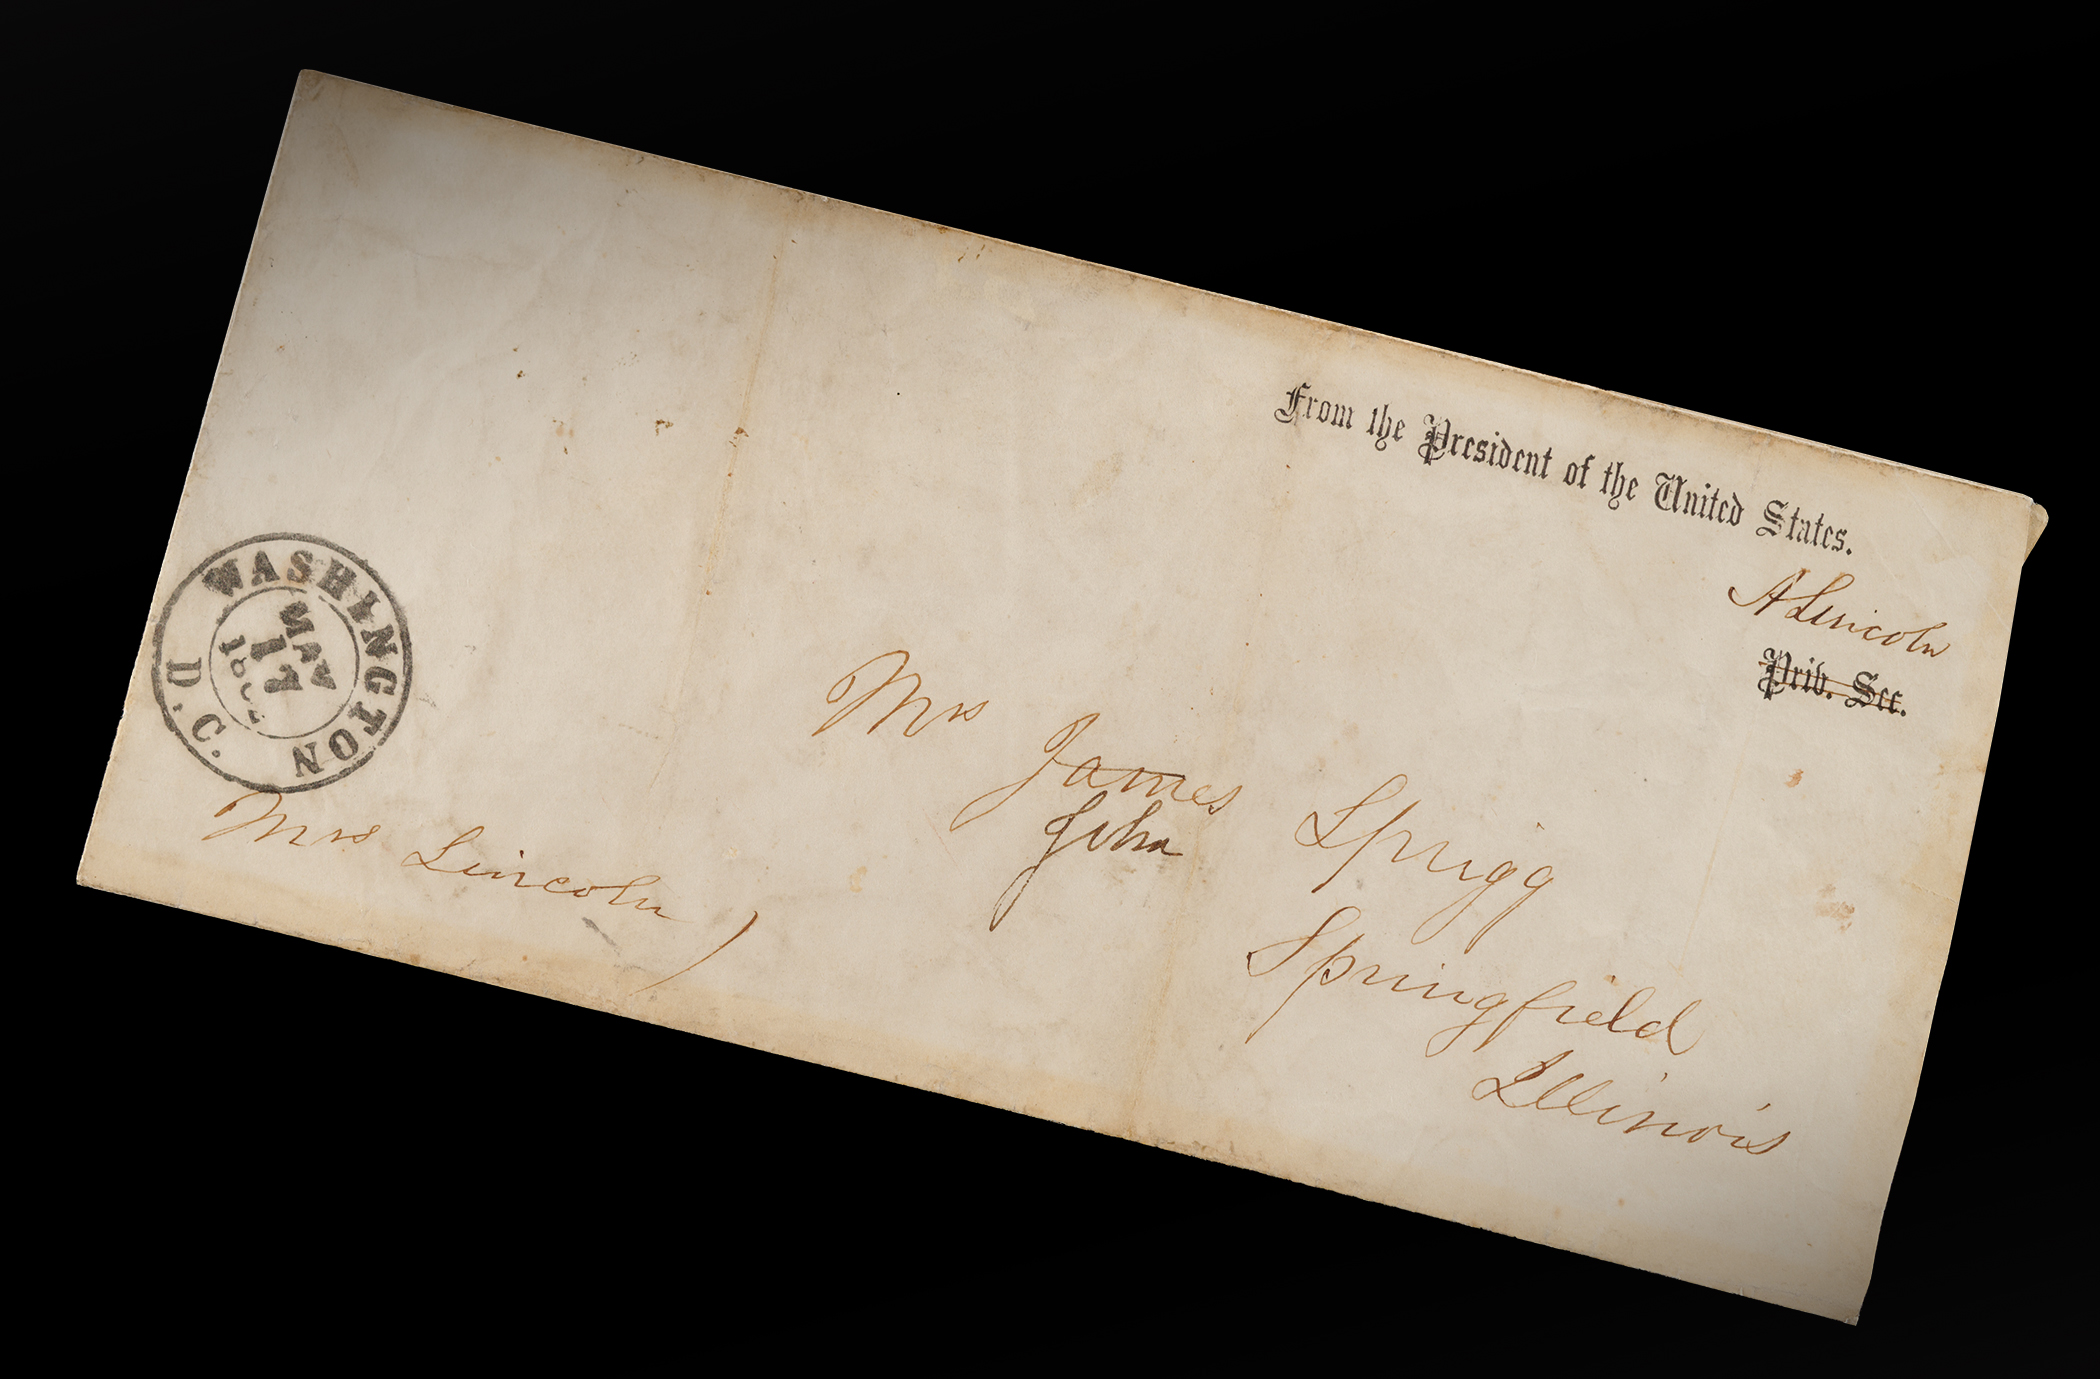 From the President of the United States.
A Lincoln
Priv. Sec.
WASHINGTON D.C.
MAY
17
Mrs James Sprigg
John
Springfield
Illinois
Mrs Lincoln )